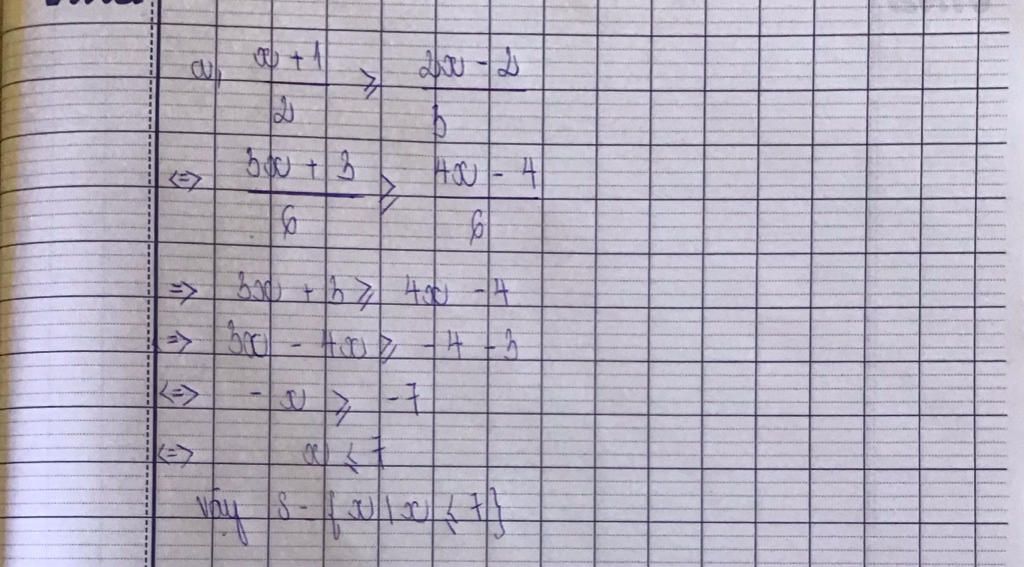 a, (x + 1)/2 ⩾ (2x - 2)/3
<=> (3x + 3)/6 ⩾ (4x - 4)/6
=> 3x + 3 ⩾ 4x - 4
=> 3x - 4x ⩾ -4 - 3
<=> -x ⩾ -7
<=> x ⩽ 7
Vậy S = {x | x ⩽ 7}